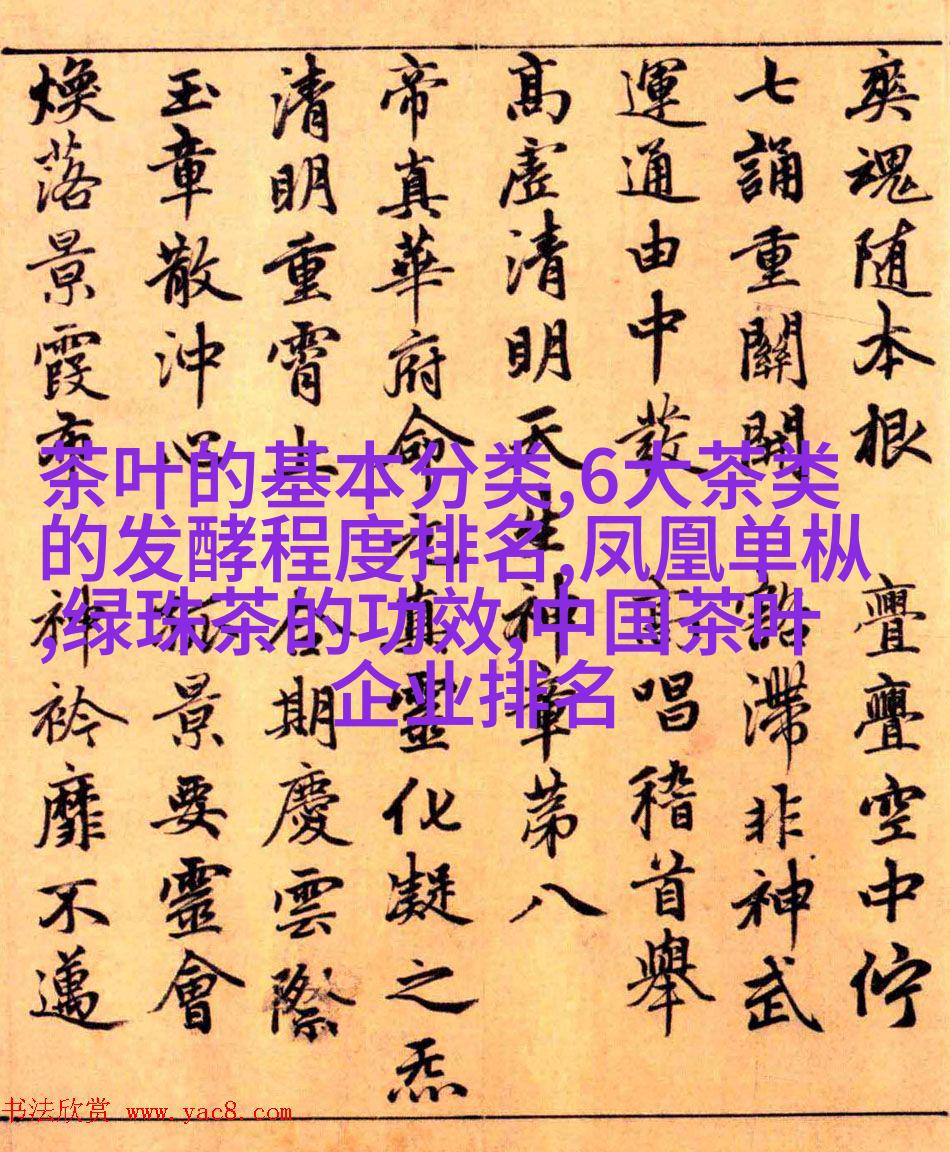 爽魂随本根 亹亹空中佇
七誦重關開 滯非神武
運通由中發 高唱稽首舉
高虛清明天生神章第八
帝真華府命元真靈化凝之炁
清明重霄上合期慶雲際
玉章散沖心 景要靈會
煥落景霞布 神衿靡不邁
茶叶的基本分类,6大茶类
的发酵程度排名,凤凰单枞
,绿珠茶的功效,中国茶叶
企业排名
书法欣赏 www.yac8.com